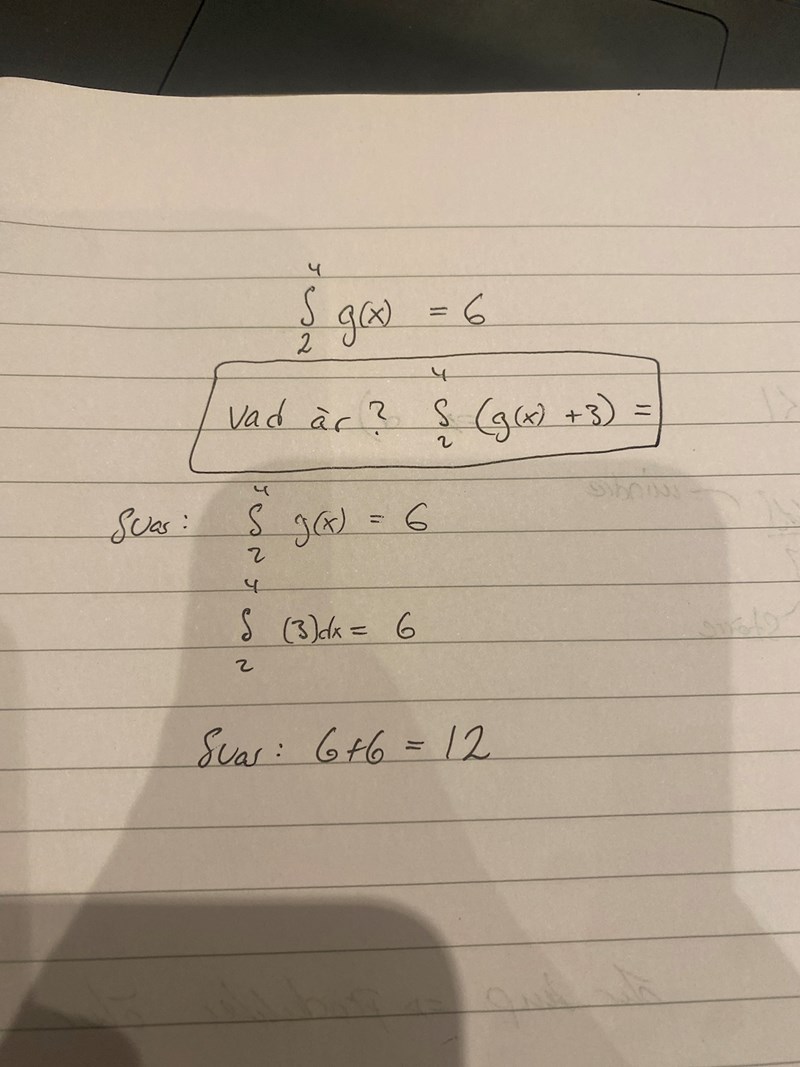 ∫₂⁴ g(x) = 6
Vad är ? ∫₂⁴ (g(x) +3) =
Svar: ∫₂⁴ g(x) = 6
∫₂⁴ (3)dx = 6
Svar: 6+6 = 12